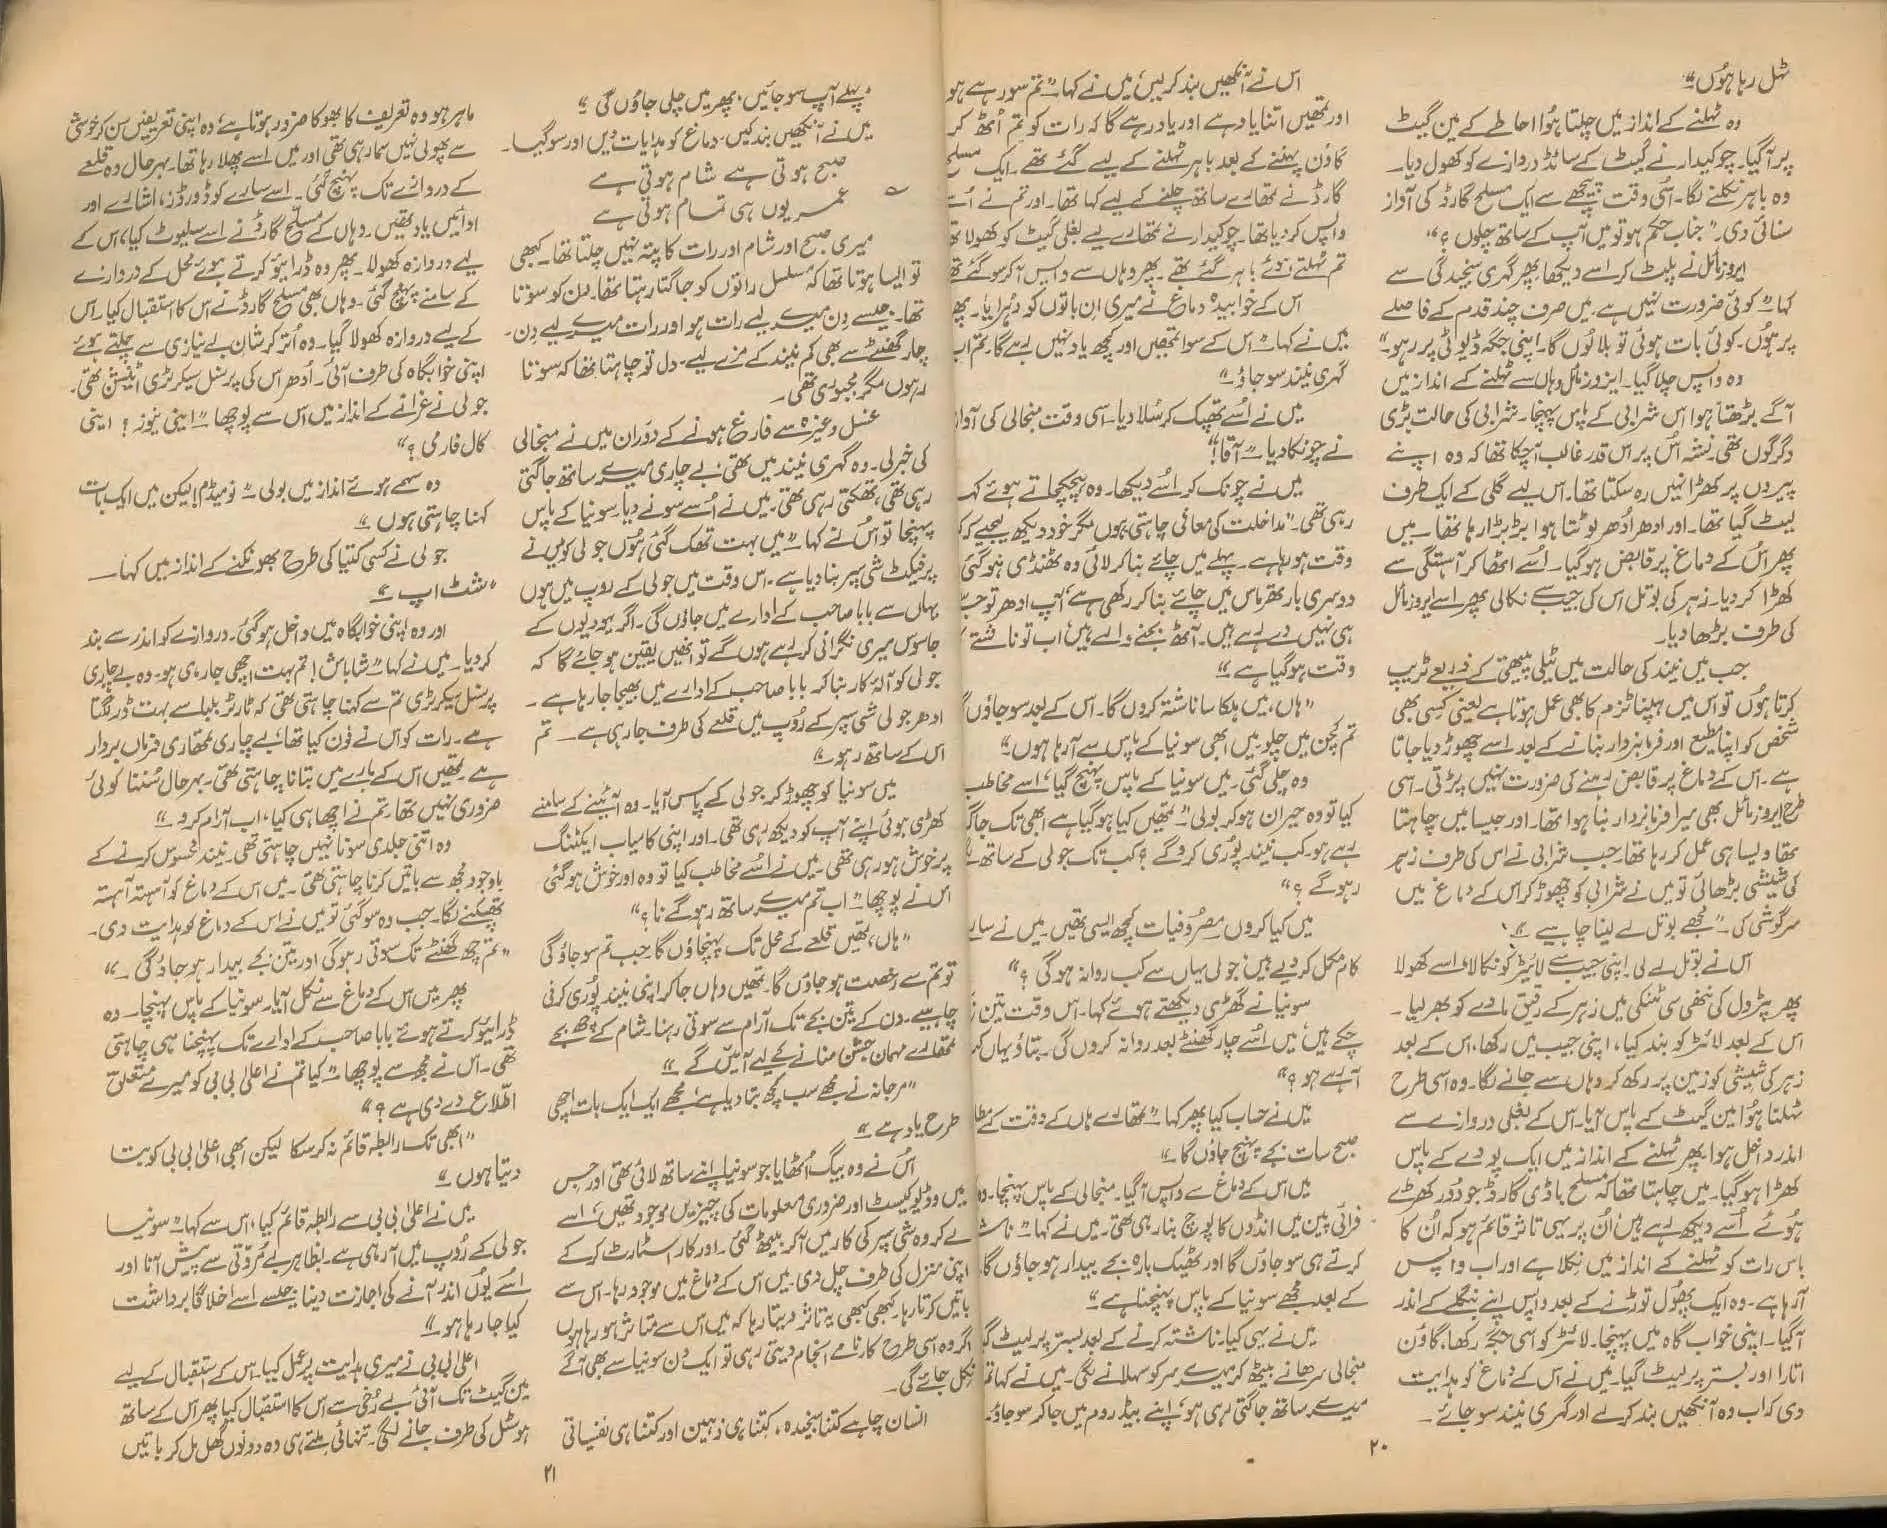 ٹہل رہا ہوں‘‘
وہ ٹہلنے کے انداز میں چلتا ہُوا احاطے کے مین گیٹ
پر آگیا۔ چوکیدار نے گیٹ کے سائڈ دروازے کو کھول دیا۔
وہ باہر نکلنے لگا۔ اُسی وقت پیچھے سے ایک مسلح گارڈ کی آواز
سنائی دی۔ ’’جناب حکم ہو تو میں آپ کے ساتھ چلوں ؟‘‘
ایروز مائل نے پلٹ کر اسے دیکھا پھر گہری سنجیدگی سے
کہا ’’کوئی ضرورت نہیں ہے، میں صرف چند قدم کے فاصلے
پر ہوں۔ کوئی بات ہوئی تو بلالوں گا۔ اپنی جگہ ڈیوٹی پر رہو۔‘‘
وہ واپس چلا گیا۔ ایروز مائل وہاں سے ٹہلنے کے انداز میں
آگے بڑھتا ہوا اس شرابی کے پاس پہنچا۔ شرابی کی حالت بڑی
دگرگوں تھی۔ نشہ اُس پر اس قدر غالب آچکا تھا کہ وہ اپنے
پیروں پر کھڑا نہیں رہ سکتا تھا۔ اس لیے گلی کے ایک طرف
لیٹ گیا تھا۔ اور ادھر اُدھر لوٹتا ہوا بڑبڑا رہا تھا۔ میں
پھر اُس کے دماغ پر قابض ہوگیا۔ اُسے اٹھا کر آہستگی سے
کھڑا کر دیا۔ زہر کی بوتل اس کی جیب سے نکالی پھر اسے ایروز مائل
کی طرف بڑھا دیا۔
جب میں نیند کی حالت میں ٹیلی پیتھی کے ذریعے ٹریپ
کرتا ہوں تو اس میں ہپناٹزم کا بھی عمل ہوتا ہے یعنی کسی بھی
شخص کو اپنا مطیع اور فرمانبردار بنانے کے بعد اسے چھوڑ دیا جاتا
ہے۔ اس کے دماغ پر قابض رہنے کی ضرورت نہیں پڑتی۔ اسی
طرح ایروز مائل بھی میرا فرمانبردار بنا ہوا تھا۔ اور جیسا میں چاہتا
تھا ویسا ہی عمل کر رہا تھا۔ جب شرابی نے اس کی طرف زہر
کی شیشی بڑھائی تو میں نے شرابی کو چھوڑ کر اس کے دماغ میں
سرگوشی کی۔ ’’مجھے بوتل لے لینا چاہیے۔‘‘
اس نے بوتل لے لی۔ اپنی جیب سے لائیٹر کو نکالا، اسے کھولا
پھر پٹرول کی ننھی سی ٹنکی میں زہر کے رقیق مادے کو بھر لیا۔
اس کے بعد لائٹر کو بند کیا، اپنی جیب میں رکھا، اس کے بعد
زہر کی شیشی کو زمین پر رکھ کر وہاں سے جانے لگا۔ وہ اسی طرح
ٹہلتا ہُوا مین گیٹ کے پاس آیا۔ اس کے بغلی دروازے سے
اندر داخل ہوا۔ پھر ٹہلنے کے انداز میں ایک پودے کے پاس
کھڑا ہو گیا۔ میں چاہتا تھا کہ مسلح باڈی گارڈ جو دور کھڑے
ہوئے اُسے دیکھ رہے ہیں اُن پر یہی تاثر قائم ہو کہ اُن کا
باس رات کو ٹہلنے کے انداز میں نکلا ہے اور اب واپس
آرہا ہے۔ وہ ایک پھول توڑنے کے بعد واپس اپنے بنگلے کے اندر
آگیا۔ اپنی خواب گاہ میں پہنچا۔ لائٹر کو اسی جگہ رکھا، گاؤن
اتارا اور بستر پر لیٹ گیا۔ میں نے اس کے دماغ کو ہدایت
دی کہ اب وہ آنکھیں بند کرلے اور گہری نیند سو جائے۔
اس نے آنکھیں بند کر لیں، میں نے کہا ’’تم سو رہے ہو
اور تمھیں اتنا یاد ہے اور یاد رہے گا کہ رات کو تم اُٹھ کر
گاؤن پہننے کے بعد باہر ٹہلنے کے لیے گئے تھے۔ ایک مسلح
گارڈ نے تمھارے ساتھ چلنے کے لیے کہا تھا۔ اور تم نے
واپس کر دیا تھا۔ چوکیدار نے تمھارے لیے بغلی گیٹ کو کھولا
تم ٹہلتے ہوئے باہر گئے تھے۔ پھر وہاں سے واپس آکر سو گئے
اس کے خوابیدہ دماغ نے میری ان باتوں کو دُہرایا۔
میں نے کہا ’’اس کے سوا تمھیں اور کچھ یاد نہیں رہے گا۔ تم اب
گہری نیند سو جاؤ‘‘
میں نے اُسے تھپک کر سُلا دیا۔ اسی وقت منجالی کی آواز
نے چونکا دیا ’’آقا!‘‘
میں نے چونک کر اُسے دیکھا۔ وہ ہچکچاتے ہوئے کہہ
رہی تھی۔ ’’مداخلت کی معافی چاہتی ہوں مگر خود دیکھ لیجیے
وقت ہو رہا ہے۔ پہلے میں چائے بنا کر لائی وہ ٹھنڈی ہوگئی
دوسری بار تھرماس میں چائے بنا کر رکھی ہے، آپ ادھر توجہ
ہی نہیں دے رہے ہیں۔ آٹھ بجنے والے ہیں، اب تو ناشتے
وقت ہوگیا ہے‘‘
’’ہاں، میں ہلکا سا ناشتہ کروں گا۔ اس کے بعد سو جاؤں گا
تم کچن میں چلو۔ میں ابھی سونیا کے پاس سے آرہا ہوں‘‘
وہ چلی گئی۔ میں سونیا کے پاس پہنچ گیا، اسے مخاطب
کیا تو وہ حیران ہو کر بولی ’’تمھیں کیا ہو گیا ہے ابھی تک جاگ
رہے ہو۔ کب نیند پوری کرو گے ؟ کب تک جولی کے ساتھ
رہو گے ؟‘‘
میں کیا کروں مصروفیات کچھ ایسی تھیں۔ میں نے سارے
کام مکمل کر دیے ہیں، جولی یہاں سے کب روانہ ہوگی ؟‘‘
سونیا نے گھڑی دیکھتے ہوئے کہا۔ اس وقت تین
چکے ہیں، میں اُسے چار گھنٹے بعد روانہ کروں گی۔ بتاؤ یہاں
آرہے ہو ؟‘‘
میں نے حساب کیا پھر کہا ’’تمھارے ہاں کے وقت کے
صبح سات بجے پہنچ جاؤں گا‘‘
میں اس کے دماغ سے واپس آگیا۔ منجالی کے پاس پہنچا۔ وہ
فرائی پین میں انڈوں کا پورچ بنا رہی تھی۔ میں نے کہا
کرتے ہی سو جاؤں گا اور ٹھیک بارہ بجے بیدار ہو جاؤں گا،
کے بعد مجھے سونیا کے پاس پہنچنا ہے‘‘
میں نے یہی کیا۔ ناشتہ کرنے کے بعد بستر پر لیٹ
منجالی سرہانے بیٹھ کر میرے سر کو سہلانے لگی۔ میں نے کہا تم
میرے ساتھ جاگتی رہی ہو، اپنے بیڈ روم میں جاکر سو جاؤ۔
۲۰
’’پہلے آپ سو جائیں، پھر میں چلی جاؤں گی‘‘
میں نے آنکھیں بند کیں۔ دماغ کو ہدایات دیں اور سو گیا۔
صبح ہوتی ہے شام ہوتی ہے
عمر یوں ہی تمام ہوتی ہے
میری صبح اور شام اور رات کا پتہ نہیں چلتا تھا۔ کبھی
تو ایسا ہوتا تھا کہ مسلسل راتوں کو جاگتا رہتا تھا۔ دن کو سوتا
تھا۔ جیسے دن میرے لیے رات ہو اور رات میرے لیے دن۔
چار گھنٹے سے بھی کم نیند کے مزے لیے۔ دل تو چاہتا تھا کہ سوتا
رہوں مگر مجبوری تھی۔
غسل وغیرہ سے فارغ ہونے کے دوران میں نے منجالی
کی خبر لی۔ وہ گہری نیند میں تھی، بے چاری میرے ساتھ جاگتی
رہی تھی، تھکتی رہی تھی۔ میں نے اُسے سونے دیا۔ سونیا کے پاس
پہنچا تو اُس نے کہا ’’میں بہت تھک گئی ہوں، جولی کو میں نے
پرفیکٹ شی سپر بنا دیا ہے۔ اس وقت میں جولی کے روپ میں ہوں
یہاں سے بابا صاحب کے ادارے میں جاؤں گی۔ اگر یہودیوں کے
جاسوس میری نگرانی کر رہے ہوں گے تو انھیں یقین ہو جائے گا کہ
جولی کو آلۂ کار بنا کر بابا صاحب کے ادارے میں بھیجا جارہا ہے۔
ادھر جولی شی سپر کے رُوپ میں قلعے کی طرف جارہی ہے۔ تم
اس کے ساتھ رہو‘‘
میں سونیا کو چھوڑ کر جولی کے پاس آیا۔ وہ آئینے کے سامنے
کھڑی ہوئی اپنے آپ کو دیکھ رہی تھی۔ اور اپنی کامیاب ایکٹنگ
پر خوش ہو رہی تھی۔ میں نے اُسے مخاطب کیا تو وہ اور خوش ہوگئی
اس نے پوچھا ’’اب تم میرے ساتھ رہو گے نا ؟‘‘
’’ہاں، تمھیں قلعے کے محل تک پہنچاؤں گا۔ جب تم سو جاؤ گی
تو تم سے رخصت ہو جاؤں گا۔ تمھیں وہاں جا کر اپنی نیند پوری کرنی
چاہیے۔ دن کے تین بجے تک آرام سے سوتی رہنا۔ شام کے چھ بجے
تمھارے مہمان جشن منانے کے لیے آئیں گے‘‘
’’مرجانہ نے مجھے سب کچھ بتا دیا ہے، مجھے ایک ایک بات اچھی
طرح یاد ہے‘‘
اُس نے وہ بیگ اُٹھایا جو سونیا اپنے ساتھ لائی تھی اور جس
میں وڈیو کیسٹ اور ضروری معلومات کی چیزیں موجود تھیں، اسے
لے کر وہ شی سپر کی کار میں آکر بیٹھ گئی۔ اور کار اسٹارٹ کر کے
اپنی منزل کی طرف چل دی۔ میں اس کے دماغ میں موجود رہا۔ اس سے
باتیں کرتا رہا۔ کبھی کبھی یہ تاثر دیتا رہا کہ میں اس سے متاثر ہو رہا ہوں
اگر وہ اسی طرح کارنامے انجام دیتی رہی تو ایک دن سونیا سے بھی آگے
نکل جائے گی۔
انسان چاہے کتنا سنجیدہ، کتنا ہی ذہین اور کتنا ہی نفسیاتی
ماہر ہو وہ تعریف کا بھوکا ضرور ہوتا ہے، وہ اپنی تعریفیں سن کر خوشی
سے پھولی نہیں سما رہی تھی اور میں اسے پھلا رہا تھا۔ بہرحال وہ قلعے
کے دروازے تک پہنچ گئی۔ اسے سارے کوڈ ورڈز، اشارے اور
ادائیں یاد تھیں۔ وہاں کے مسلح گارڈ نے اسے سلیوٹ کیا، اس کے
لیے دروازہ کھولا۔ پھر وہ ڈرائیو کرتے ہوئے محل کے دروازے
کے سامنے پہنچ گئی۔ وہاں بھی مسلح گارڈ نے اس کا استقبال کیا۔ اس
کے لیے دروازہ کھولا گیا۔ وہ اُتر کر شان بے نیازی سے چلتے ہوئے
اپنی خوابگاہ کی طرف آئی۔ اُدھر اس کی پرسنل سیکرٹری اٹینشن تھی۔
جولی نے غرانے کے انداز میں اس سے پوچھا ’’اینی نیوز ؟ اینی
کال فار می ؟‘‘
وہ سہمے ہوئے انداز میں بولی ’’نو میڈم! لیکن میں ایک بات
کہنا چاہتی ہوں‘‘
جولی نے کسی کتیا کی طرح بھونکنے کے انداز میں کہا۔
’’شٹ اپ‘‘
اور وہ اپنی خوابگاہ میں داخل ہوگئی۔ دروازے کو اندر سے بند
کر دیا۔ میں نے کہا ’’شاباش! تم بہت اچھی جارہی ہو۔ وہ بے چاری
پرسنل سیکرٹری تم سے کہنا چاہتی تھی کہ ٹارٹر بلبا سے بہت ڈر لگتا
ہے۔ رات کو اس نے فون کیا تھا، بے چاری تمھاری فرماں بردار
ہے۔ تمھیں اس کے بارے میں بتانا چاہتی تھی۔ بہرحال سُننا کوئی
ضروری نہیں تھا۔ تم نے اچھا ہی کیا، اب آرام کرو‘‘
وہ اتنی جلدی سونا نہیں چاہتی تھی۔ نیند محسوس کرنے کے
باوجود مجھ سے باتیں کرنا چاہتی تھی۔ میں اس کے دماغ کو آہستہ آہستہ
تھپکنے لگا۔ جب وہ سو گئی تو میں نے اس کے دماغ کو ہدایت دی۔
’’تم چھ گھنٹے تک سوتی رہو گی اور تین بجے بیدار ہو جاؤ گی۔‘‘
پھر میں اس کے دماغ سے نکل آیا۔ سونیا کے پاس پہنچا۔ وہ
ڈرائیو کرتے ہوئے بابا صاحب کے ادارے تک پہنچنا ہی چاہتی
تھی۔ اس نے مجھ سے پوچھا ’’کیا تم نے اعلیٰ بی بی کو میرے متعلق
اطلاع دے دی ہے ؟‘‘
’’ابھی تک رابطہ قائم نہ کر سکا لیکن ابھی اعلیٰ بی بی کو بتا
دیتا ہوں‘‘
میں نے اعلیٰ بی بی سے رابطہ قائم کیا، اس سے کہا ’’سونیا
جولی کے رُوپ میں آرہی ہے۔ بظاہر بے مروتی سے پیش آنا اور
اُسے یوں اندر آنے کی اجازت دینا جیسے اسے اخلاقاً برداشت
کیا جارہا ہو‘‘
اعلیٰ بی بی نے میری ہدایت پر عمل کیا۔ اس کے استقبال کے لیے
مین گیٹ تک آئی، بے رخی سے اس کا استقبال کیا پھر اس کے ساتھ
ہوسٹل کی طرف جانے لگی۔ تنہائی ملتے ہی وہ دونوں گھل مل کر باتیں
۲۱